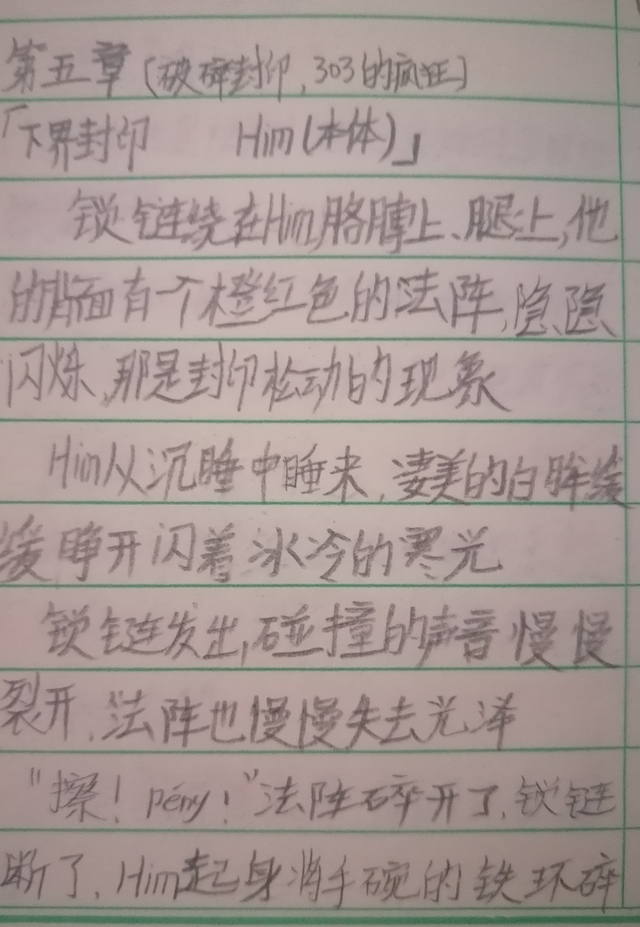 第五章（破碎封印，303的疯狂）
「下界封印 Him(本体)」
锁链绕在Him胳膊上、腿上,他
的背面有一个橙红色的法阵,隐隐
闪烁,那是封印松动的现象
Him从沉睡中睡来,凄美的白眸缓
缓睁开闪着冰冷的寒光
锁链发出,碰撞的声音慢慢
裂开,法阵也慢慢失去光泽
"擦！pény！"法阵碎开了,锁链
断了,Him起身将手碗的铁环碎